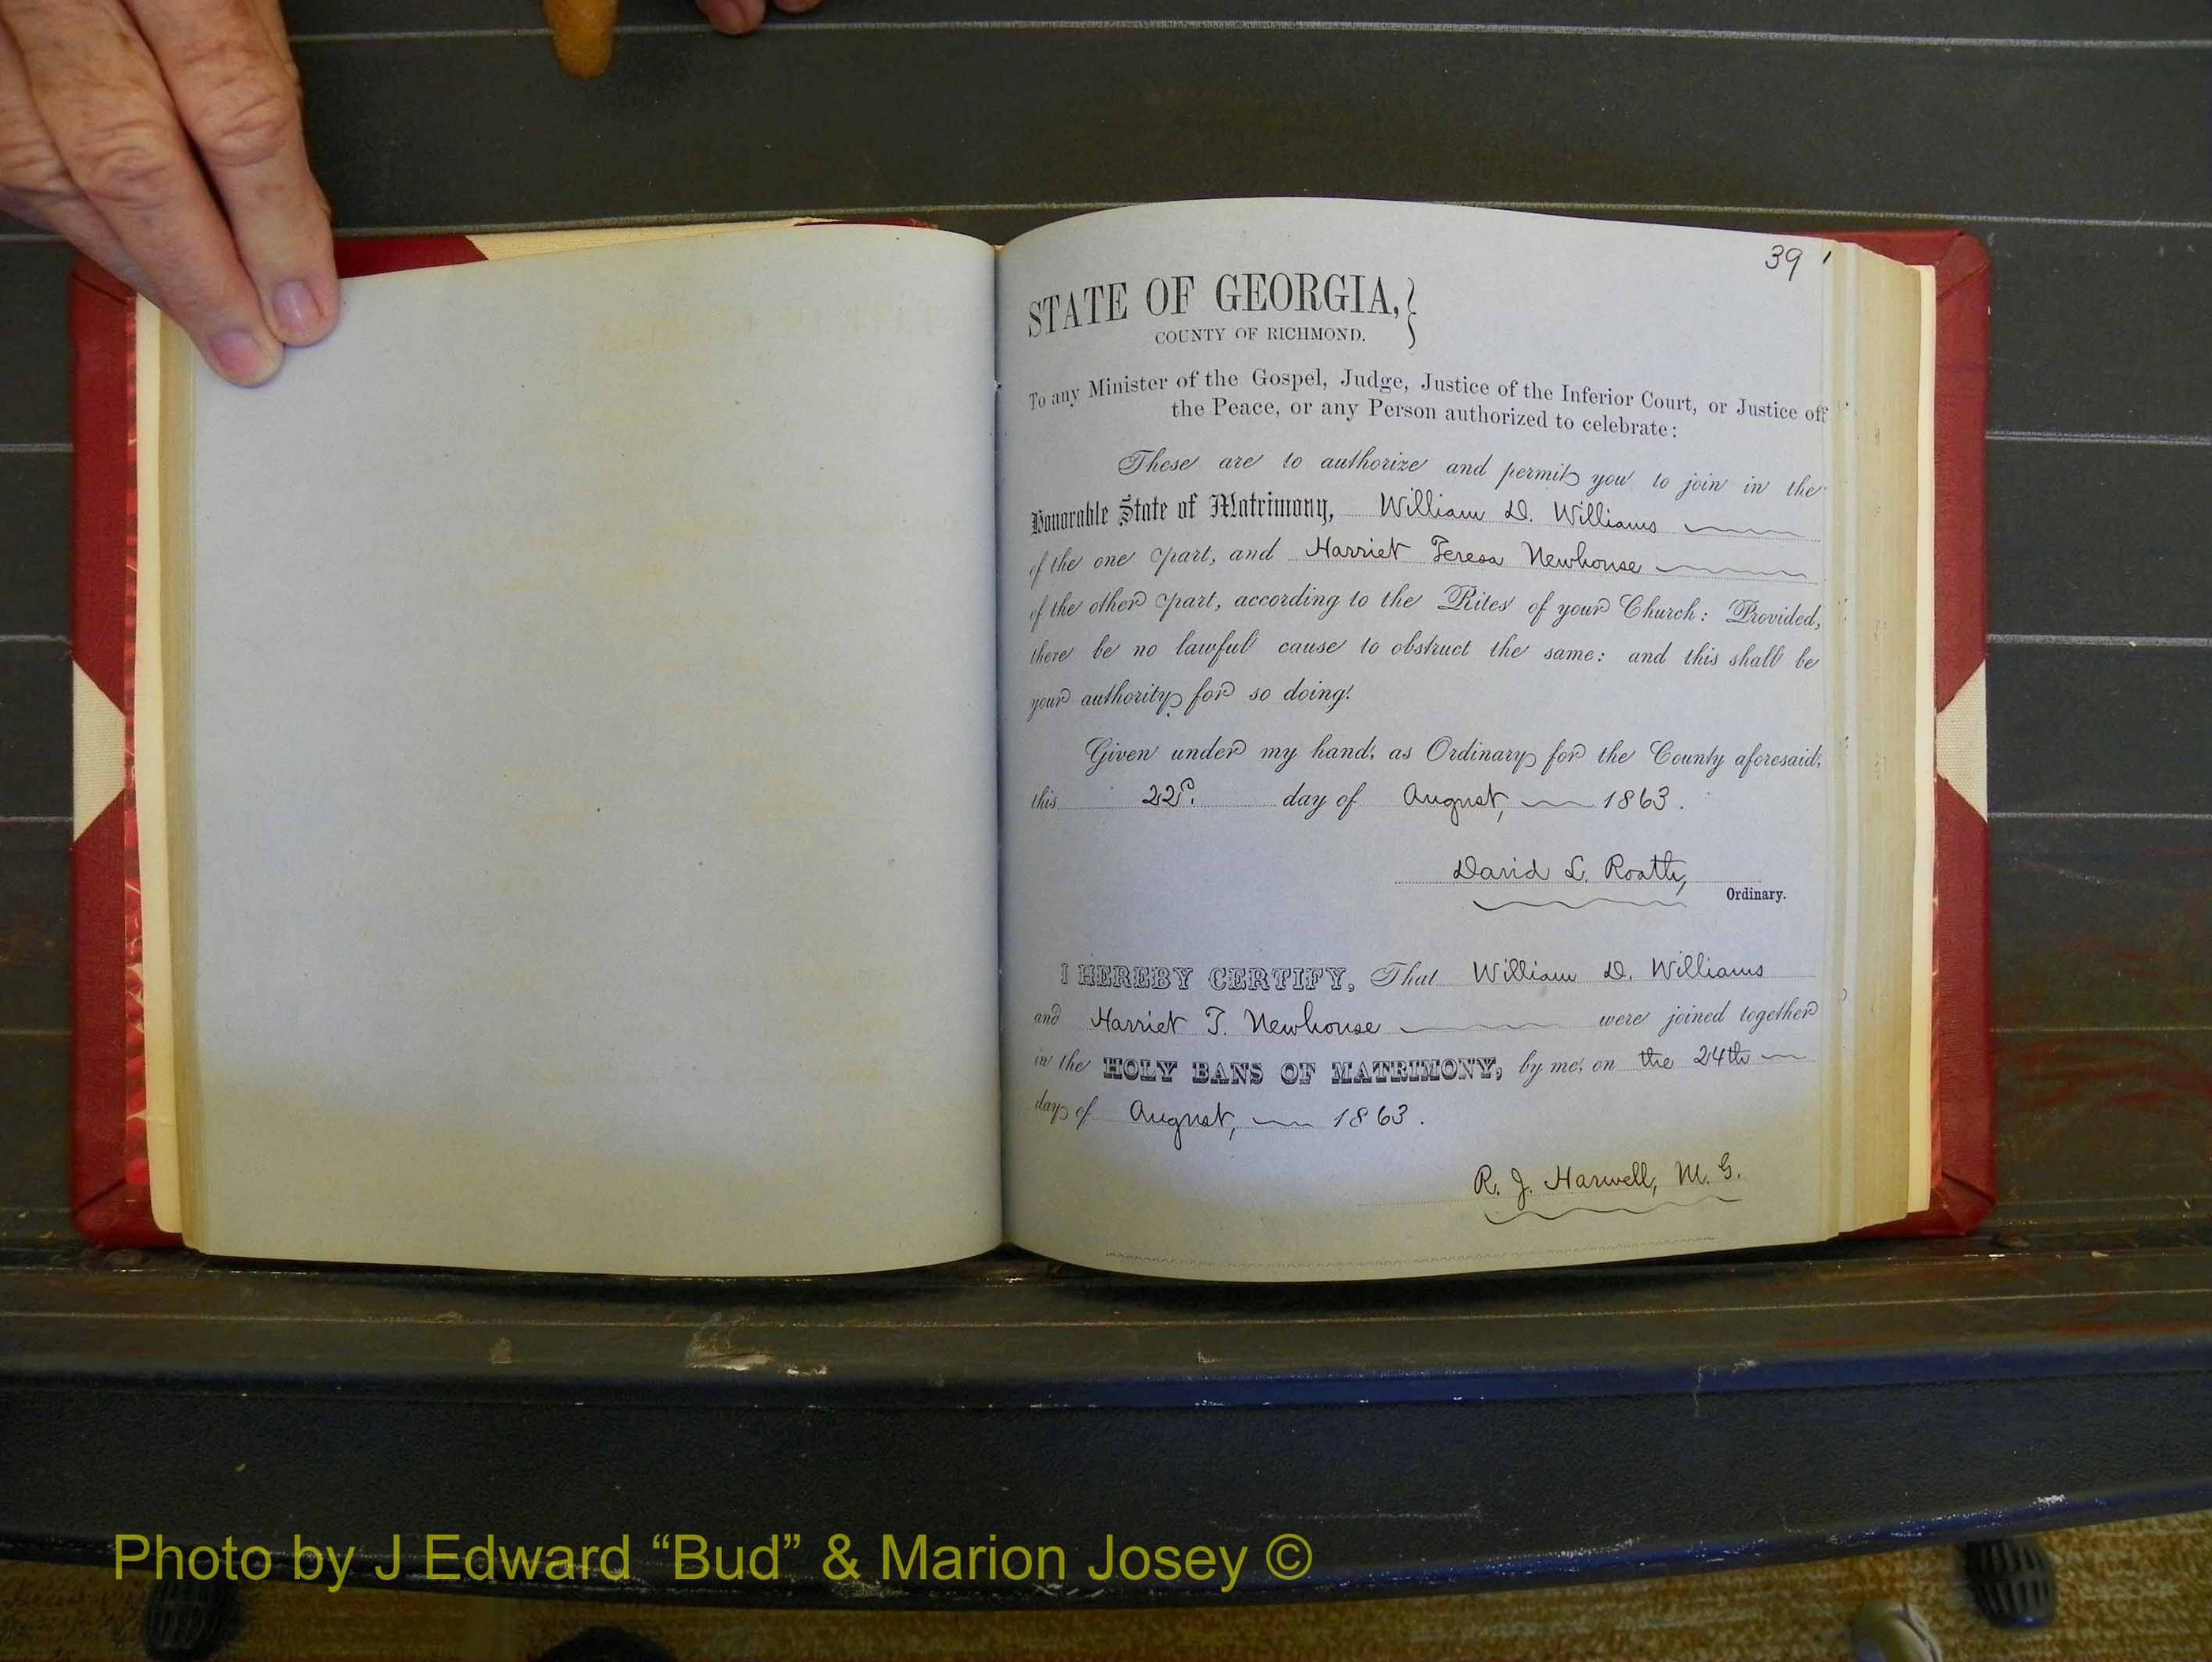 39
STATE OF GEORGIA, }
COUNTY OF RICHMOND.
To any Minister of the Gospel, Judge, Justice of the Inferior Court, or Justice off
the Peace, or any Person authorized to celebrate:
These are to authorize and permit you to join in the
Honorable State of Matrimony, William D. Williams
of the one part, and Harriet Teresa Newhouse
of the other part, according to the Rites of your Church: Provided,
there be no lawful cause to obstruct the same: and this shall be
your authority for so doing.
Given under my hand, as Ordinary for the County aforesaid,
this 22d. day of August, 1863.
David L. Roath,
Ordinary.
I HEREBY CERTIFY, That William D. Williams
and Harriet T. Newhouse were joined together
in the HOLY BANS OF MATRIMONY, by me, on the 24th
day of August, 1863.
R. J. Harwell, M. G.
Photo by J Edward “Bud” & Marion Josey ©